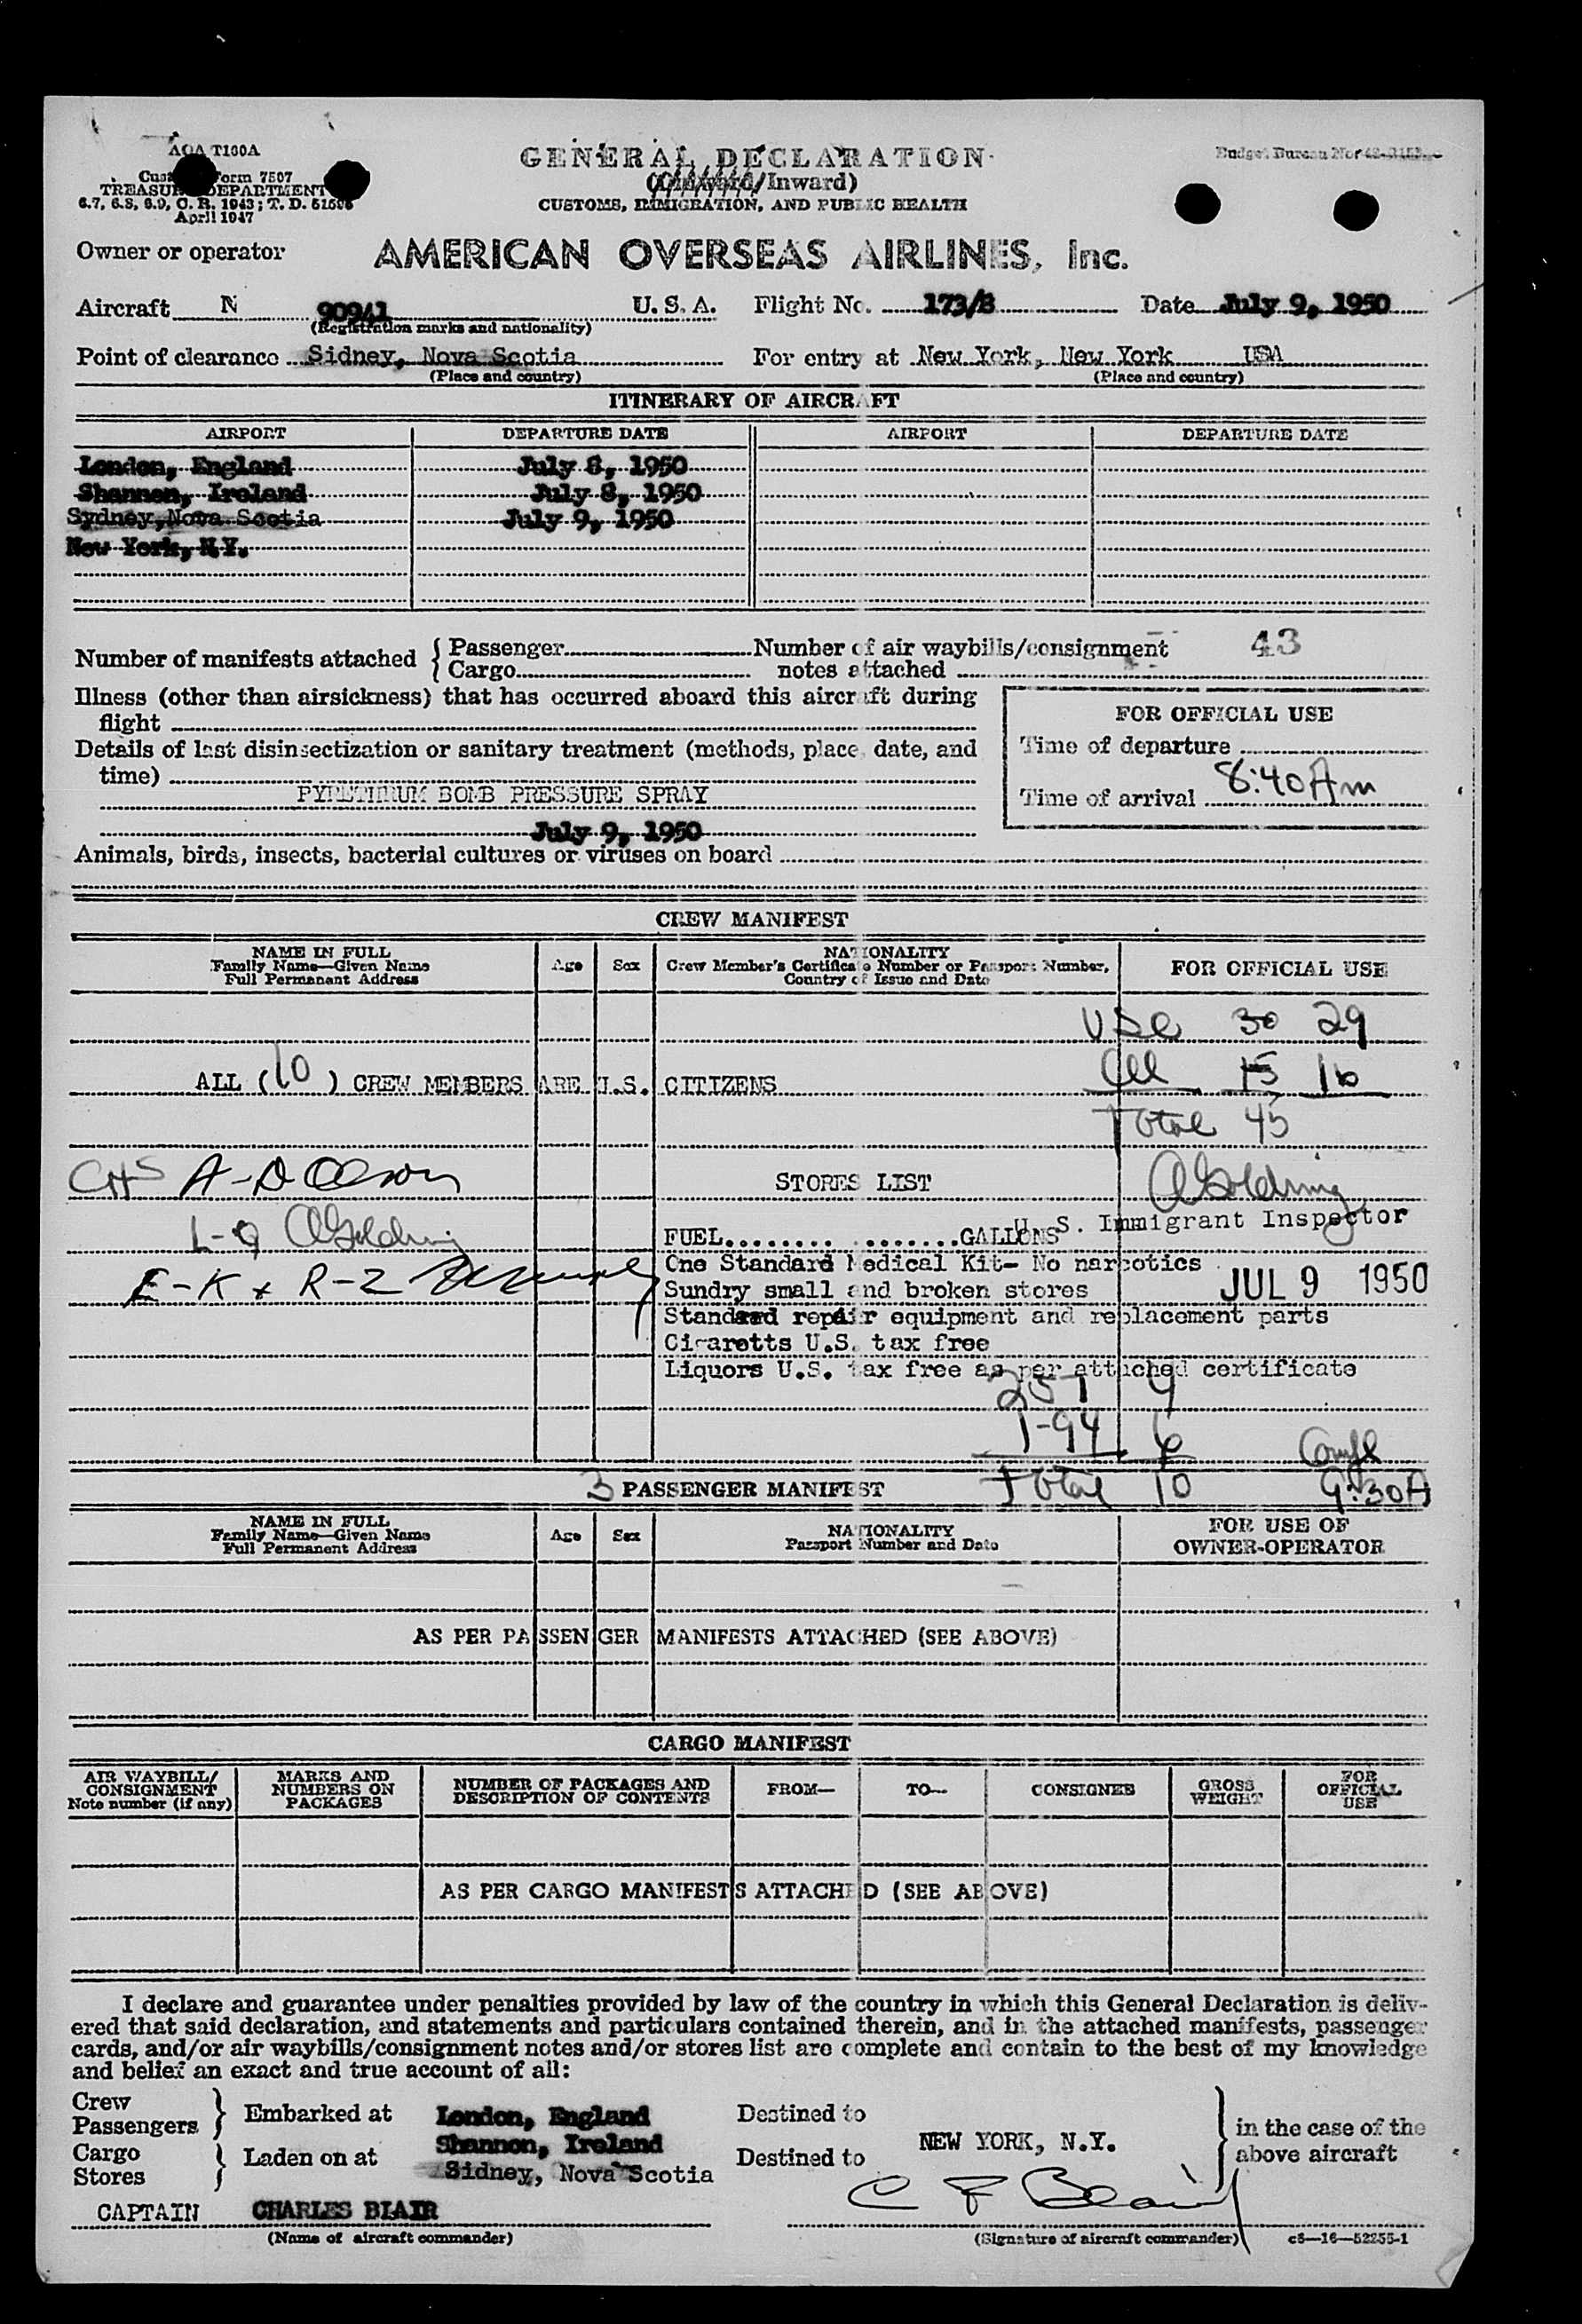 AOA T100A
Form 7507
TREASURY DEPARTMENT
6.7, 6.8, 6.9, C. R. 1943; T. D. 51595
April 1947
GENERAL DECLARATION
(Outward/Inward)
CUSTOMS, IMMIGRATION, AND PUBLIC HEALTH
Budget Bureau No.
Owner or operator AMERICAN OVERSEAS AIRLINES, Inc.
Aircraft N 90941 U. S. A. Flight No. 173/8 Date July 9, 1950
(Registration marks and nationality)
Point of clearance Sidney, Nova Scotia For entry at New York, New York USA
(Place and country) (Place and country)
ITINERARY OF AIRCRAFT
AIRPORT DEPARTURE DATE AIRPORT DEPARTURE DATE
London, England July 8, 1950
Shannon, Ireland July 8, 1950
Sydney, Nova Scotia July 9, 1950
New York, N.Y.
Number of manifests attached { Passenger Number of air waybills/consignment 43
{ Cargo notes attached
Illness (other than airsickness) that has occurred aboard this aircraft during
flight
FOR OFFICIAL USE
Details of last disinsectization or sanitary treatment (methods, place, date, and
time)
Time of departure
PYRETHRUM BOMB PRESSURE SPRAY
Time of arrival 8:40 Am
July 9, 1950
Animals, birds, insects, bacterial cultures or viruses on board
CREW MANIFEST
NAME IN FULL
Family Name—Given Name
Full Permanent Address
Age
Sex
NATIONALITY
Crew Member's Certificate Number or Passport Number,
Country of Issue and Date
FOR OFFICIAL USE
USC 30 29
ALL (10) CREW MEMBERS ARE U.S. CITIZENS
15 16
Total 45
A-D Olson
STORES LIST
AGolding
L-Q AGolding
U. S. Immigrant Inspector
FUEL.................GALLONS
E-K + R-Z
One Standard Medical Kit- No narcotics
Sundry small and broken stores
JUL 9 1950
Standard repair equipment and replacement parts
Cigaretts U.S. tax free
Liquors U.S. tax free as per attached certificate
257 4
I-94 6
Compl
3 PASSENGER MANIFEST
Total 10
9:30A
NAME IN FULL
Family Name—Given Name
Full Permanent Address
Age
Sex
NATIONALITY
Passport Number and Date
FOR USE OF
OWNER-OPERATOR
AS PER PASSENGER MANIFESTS ATTACHED (SEE ABOVE)
CARGO MANIFEST
AIR WAYBILL/
CONSIGNMENT
Note number (if any)
MARKS AND
NUMBERS ON
PACKAGES
NUMBER OF PACKAGES AND
DESCRIPTION OF CONTENTS
FROM—
TO—
CONSIGNEE
GROSS
WEIGHT
FOR
OFFICIAL
USE
AS PER CARGO MANIFESTS ATTACHED (SEE ABOVE)
I declare and guarantee under penalties provided by law of the country in which this General Declaration is deliv-
ered that said declaration, and statements and particulars contained therein, and in the attached manifests, passenger
cards, and/or air waybills/consignment notes and/or stores list are complete and contain to the best of my knowledge
and belief an exact and true account of all:
Crew
Passengers } Embarked at London, England Destined to
Cargo
Stores } Laden on at Shannon, Ireland Destined to NEW YORK, N.Y. } in the case of the
above aircraft
Sidney, Nova Scotia
C F Blair
CAPTAIN CHARLES BLAIR
(Name of aircraft commander) (Signature of aircraft commander) c6—16—52255-1